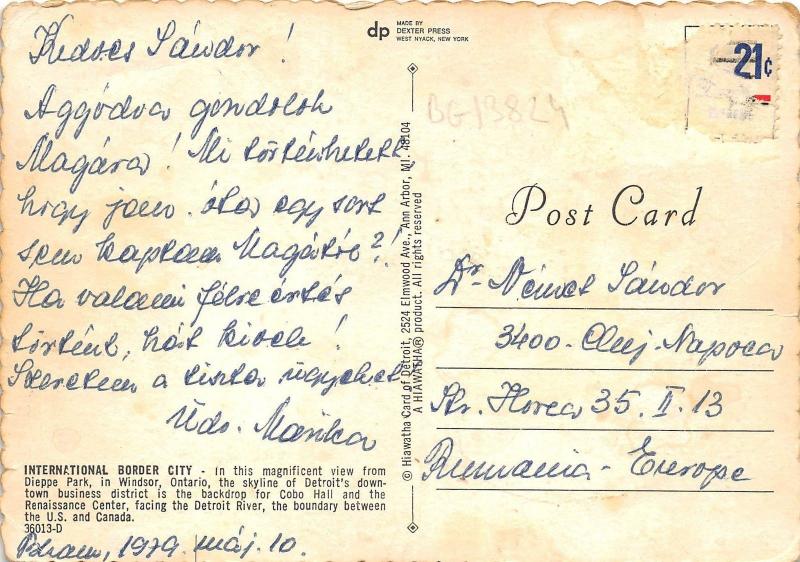 Kedves Sándor!
Aggódva gondolok
Magára! Mi történhetett,
hogy jan. óta egy sort
sem kaptam Magától?!
Ha valami félreértés
történt, hát kioch!
Szeretem a tiszta ügyeket
Üdv. Marika
INTERNATIONAL BORDER CITY - In this magnificent view from
Dieppe Park, in Windsor, Ontario, the skyline of Detroit's down-
town business district is the backdrop for Cobo Hall and the
Renaissance Center, facing the Detroit River, the boundary between
the U.S. and Canada.
36013-D
1979. máj. 10.
dp
MADE BY
DEXTER PRESS
WEST NYACK, NEW YORK
© Hiawatha Card of Detroit, 2524 Elmwood Ave., Ann Arbor, MI. 48104
A HIAWATHA® product. All rights reserved
BG13824
21¢
Post Card
Dr. Német Sándor
3400-Cluj-Napoca
Str. Horea 35. II. 13
Rumania-Europe